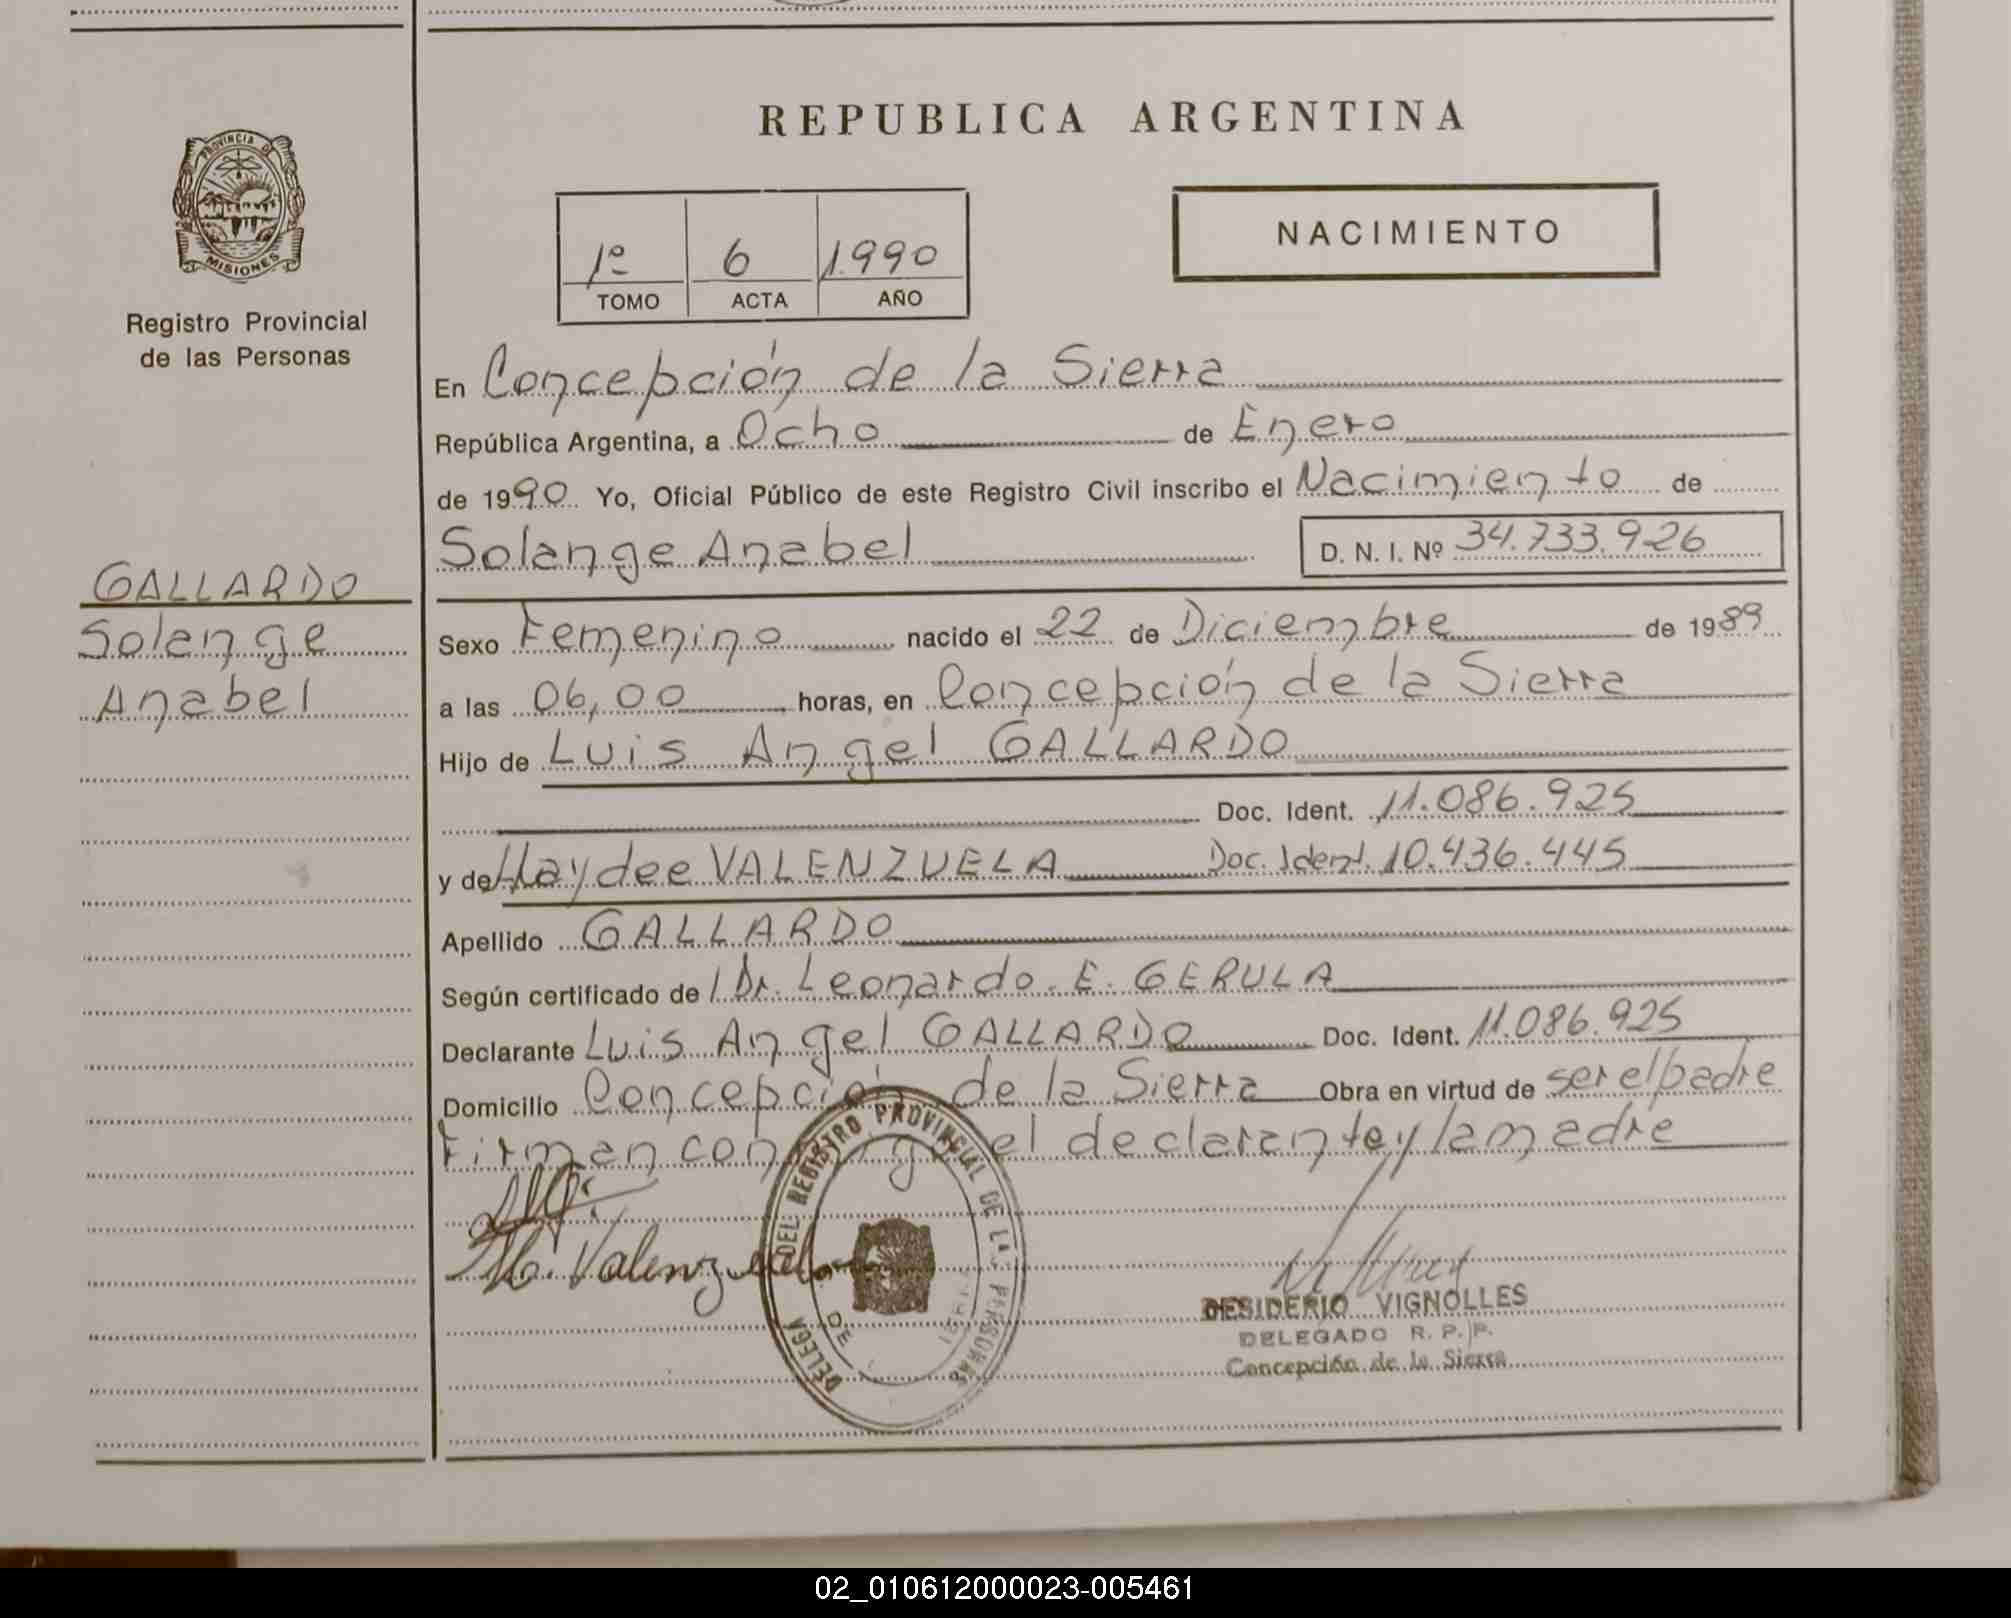 REPUBLICA ARGENTINA
PROVINCIA DE
MISIONES
Registro Provincial
de las Personas
1º 6 1.990
TOMO ACTA AÑO
NACIMIENTO
En Concepción de la Sierra
República Argentina, a Ocho de Enero
de 1990 Yo, Oficial Público de este Registro Civil inscribo el Nacimiento de
Solange Anabel D. N. I. Nº 34.733.926
GALLARDO
Solange
Anabel
Sexo Femenino nacido el 22 de Diciembre de 1989
a las 06,00 horas, en Concepción de la Sierra
Hijo de Luis Angel GALLARDO
Doc. Ident. 11.086.925
y de Haydee VALENZUELA Doc. Ident. 10.436.445
Apellido GALLARDO
Según certificado de l Dr. Leonardo. E. GERULA
Declarante Luis Angel GALLARDO Doc. Ident. 11.086.925
Domicilio Concepción de la Sierra Obra en virtud de ser el padre
Firman conmigo el declarante y la madre
H. Valenzuela
DEL REGISTRO PROVINCIAL DE LAS PERSONAS
DELEGA
DE
DESIDERIO VIGNOLLES
DELEGADO R. P. P.
Concepción de la Sierra
02_010612000023-005461